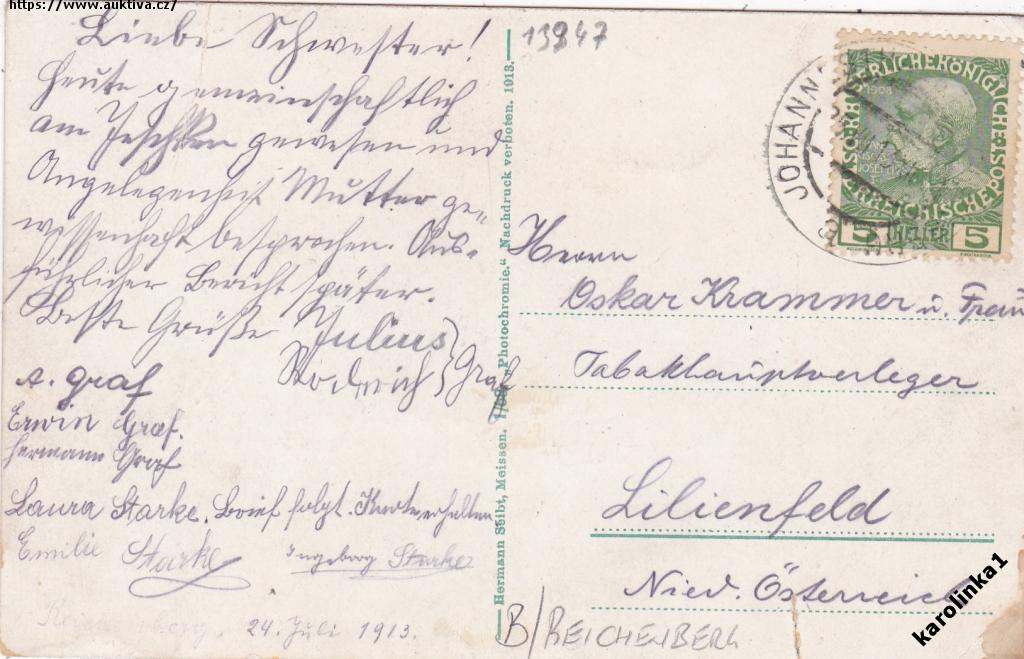 https://www.auktiva.cz/
Liebe Schwester!
Heute gemeinschaftlich
am Jeschken gewesen und
Angelegenheit Mutter ge=
wissenhaft besprochen. Aus=
führlicher Bericht später.
Beste Grüße Julius
Roderich } Graf
A. Graf
Erwin Graf.
Hermann Graf
Laura Starke. Brief folgt. Karte erhalten
Emilie Starke
Ingeborg Starke
24. Juli 1913.
Hermann Seibt, Meissen. "Photochromie." Nachdruck verboten. 1913.
13947
JOHANN
1908
5 HELLER 5
Herrn
Oskar Krammer u. Frau
Tabakhauptverleger
Lilienfeld
Nied. Österreich
B/REICHENBERG
karolinka1